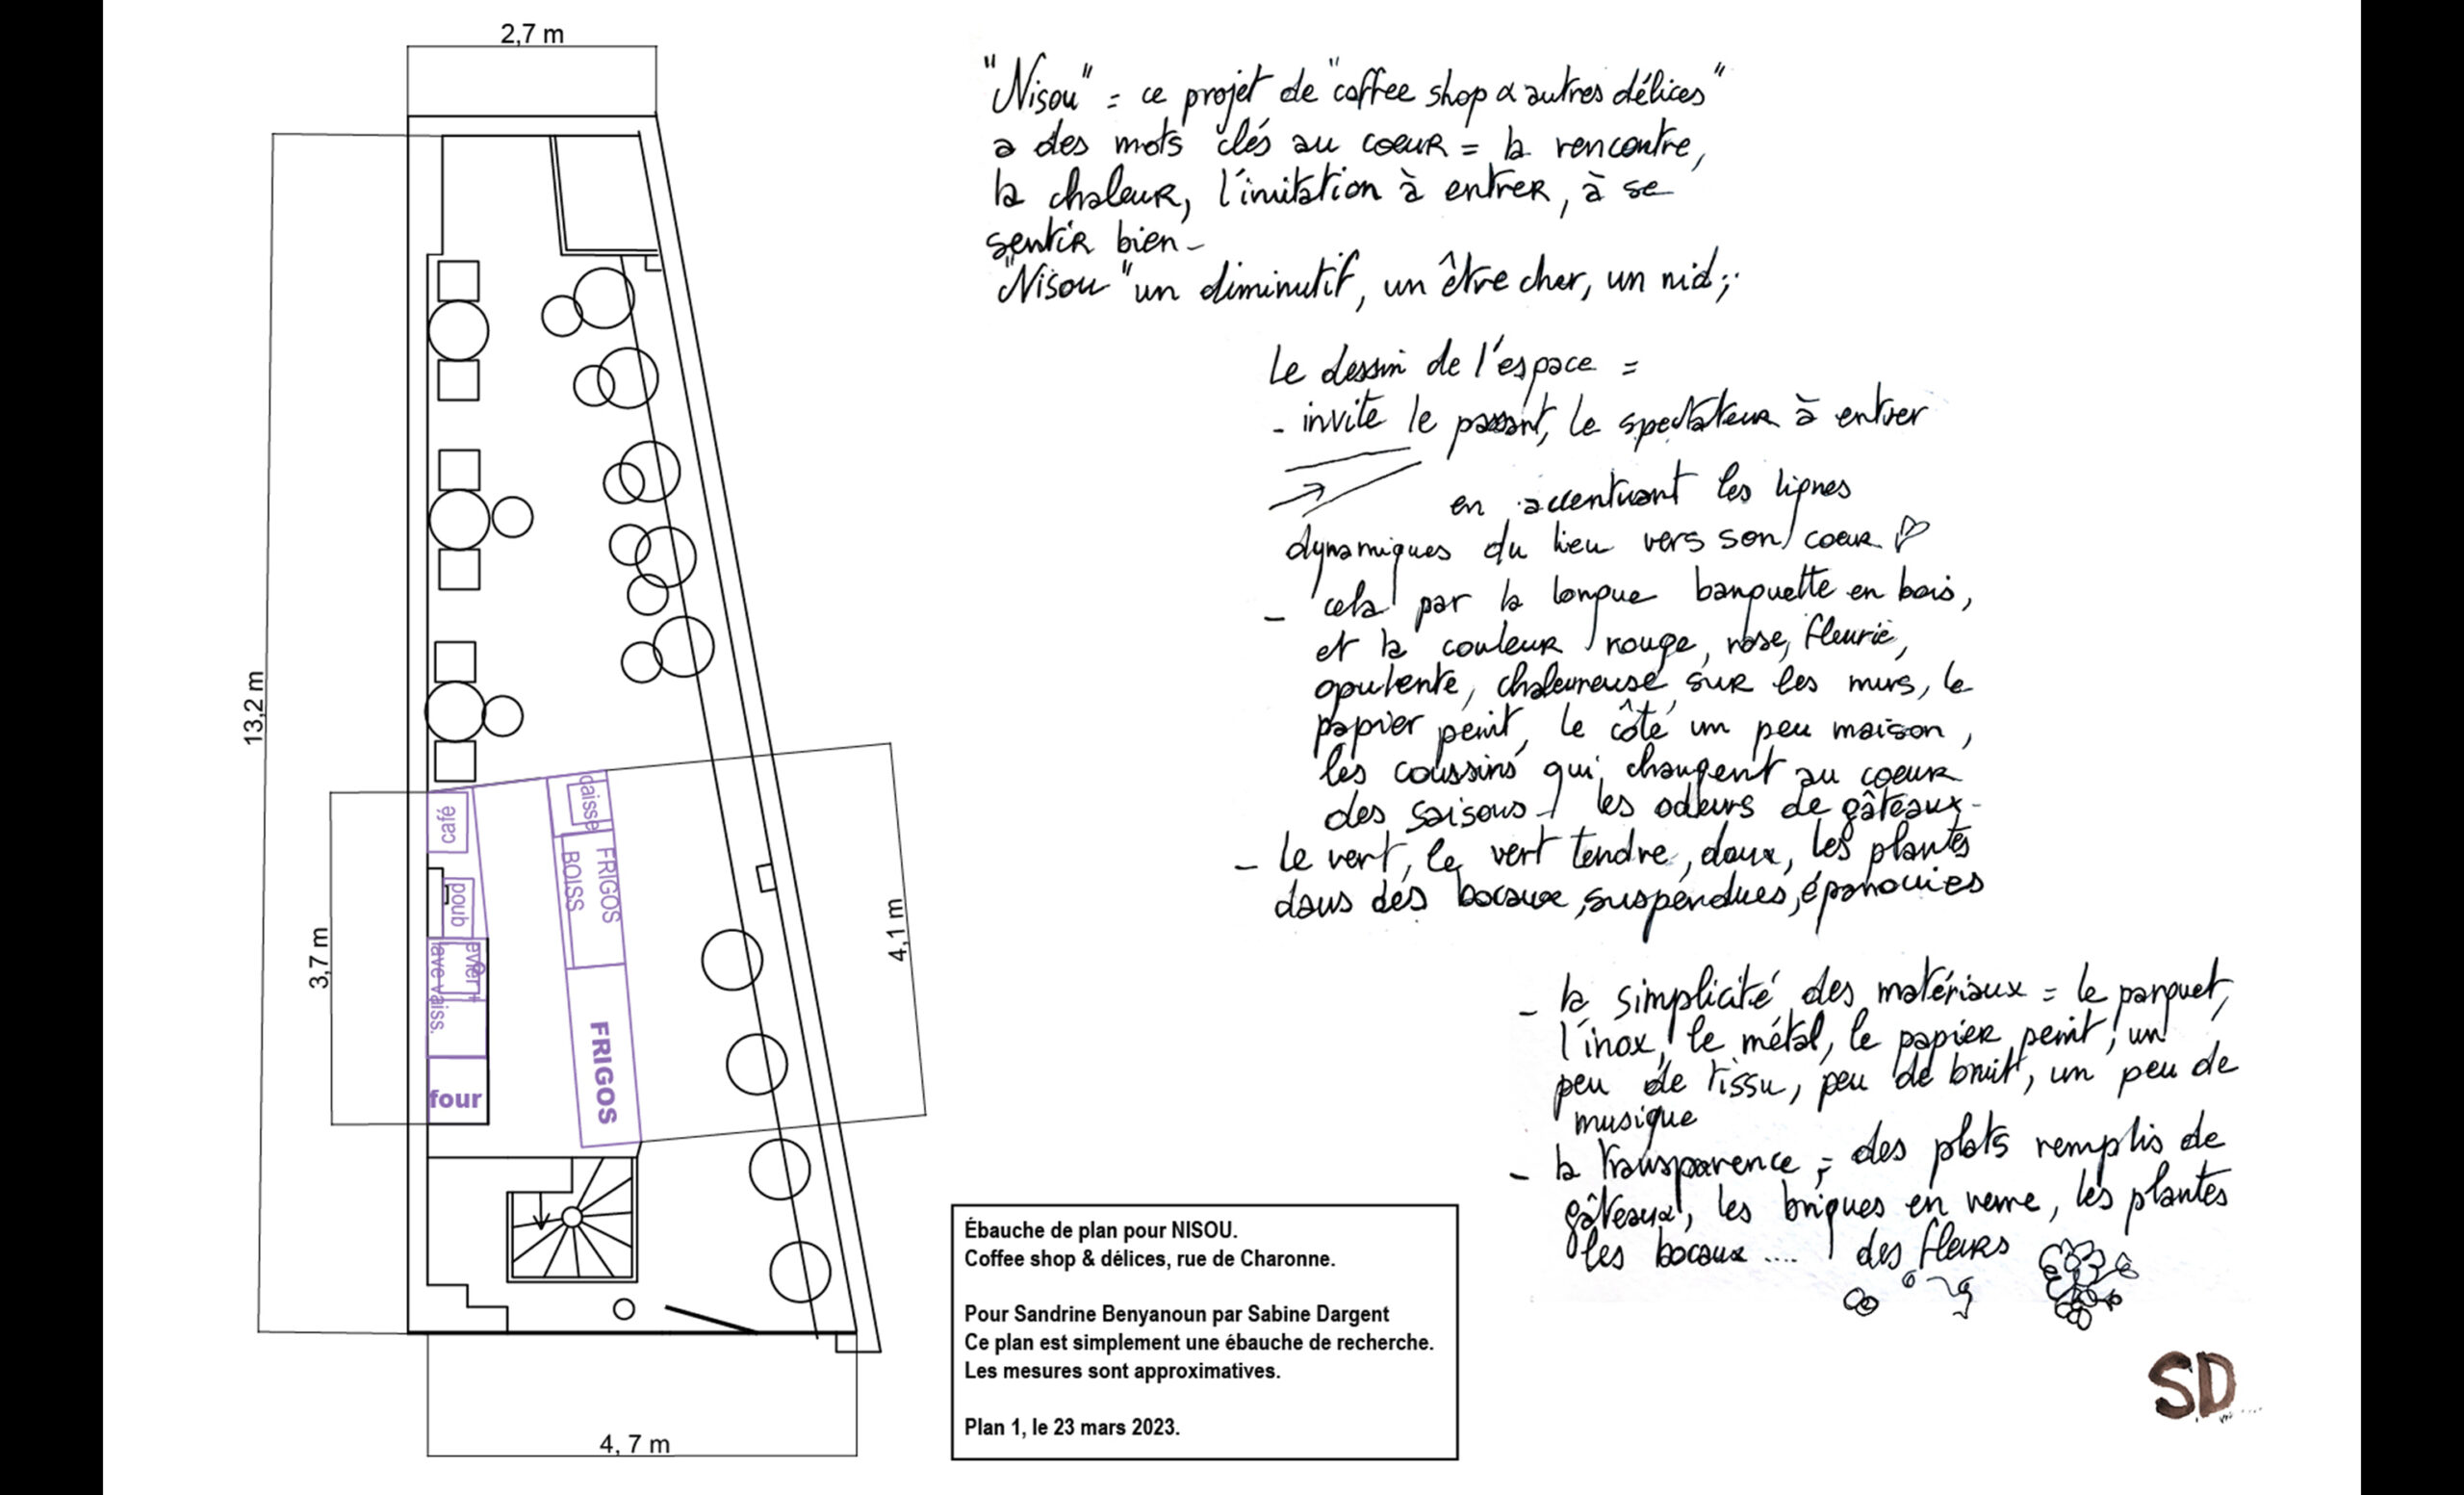 2,7 m
13,2 m
3,7 m
4,1 m
4, 7 m
café
caisse
FRIGOS
BOISS
évier +
lave vaiss.
four
FRIGOS
"Nisou" = ce projet de "coffee shop & autres délices"
a des mots clés au coeur = la rencontre,
la chaleur, l'invitation à entrer, à se
sentir bien -
"Nisou" un diminutif, un être cher, un nid;.
Le dessin de l'espace =
- invite le passant, le spectateur à entrer
en accentuant les lignes
dynamiques du lieu vers son coeur
- cela par la longue banquette en bois,
et la couleur rouge, rose, fleurie,
opulente, chaleureuse sur les murs, le
papier peint, le côté un peu maison,
les coussins qui changent au coeur
des saisons - les odeurs de gâteaux -
- le vert, le vert tendre, doux, les plantes
dans des bocaux, suspendues, épanouies
- la simplicité des matériaux = le parquet,
l'inox, le métal, le papier peint, un
peu de tissu, peu de bruit, un peu de
musique
- la transparence = des plats remplis de
gâteaux, les briques en verre, les plantes
les bocaux .... des fleurs
SD
Ébauche de plan pour NISOU.
Coffee shop & délices, rue de Charonne.
Pour Sandrine Benyanoun par Sabine Dargent
Ce plan est simplement une ébauche de recherche.
Les mesures sont approximatives.
Plan 1, le 23 mars 2023.